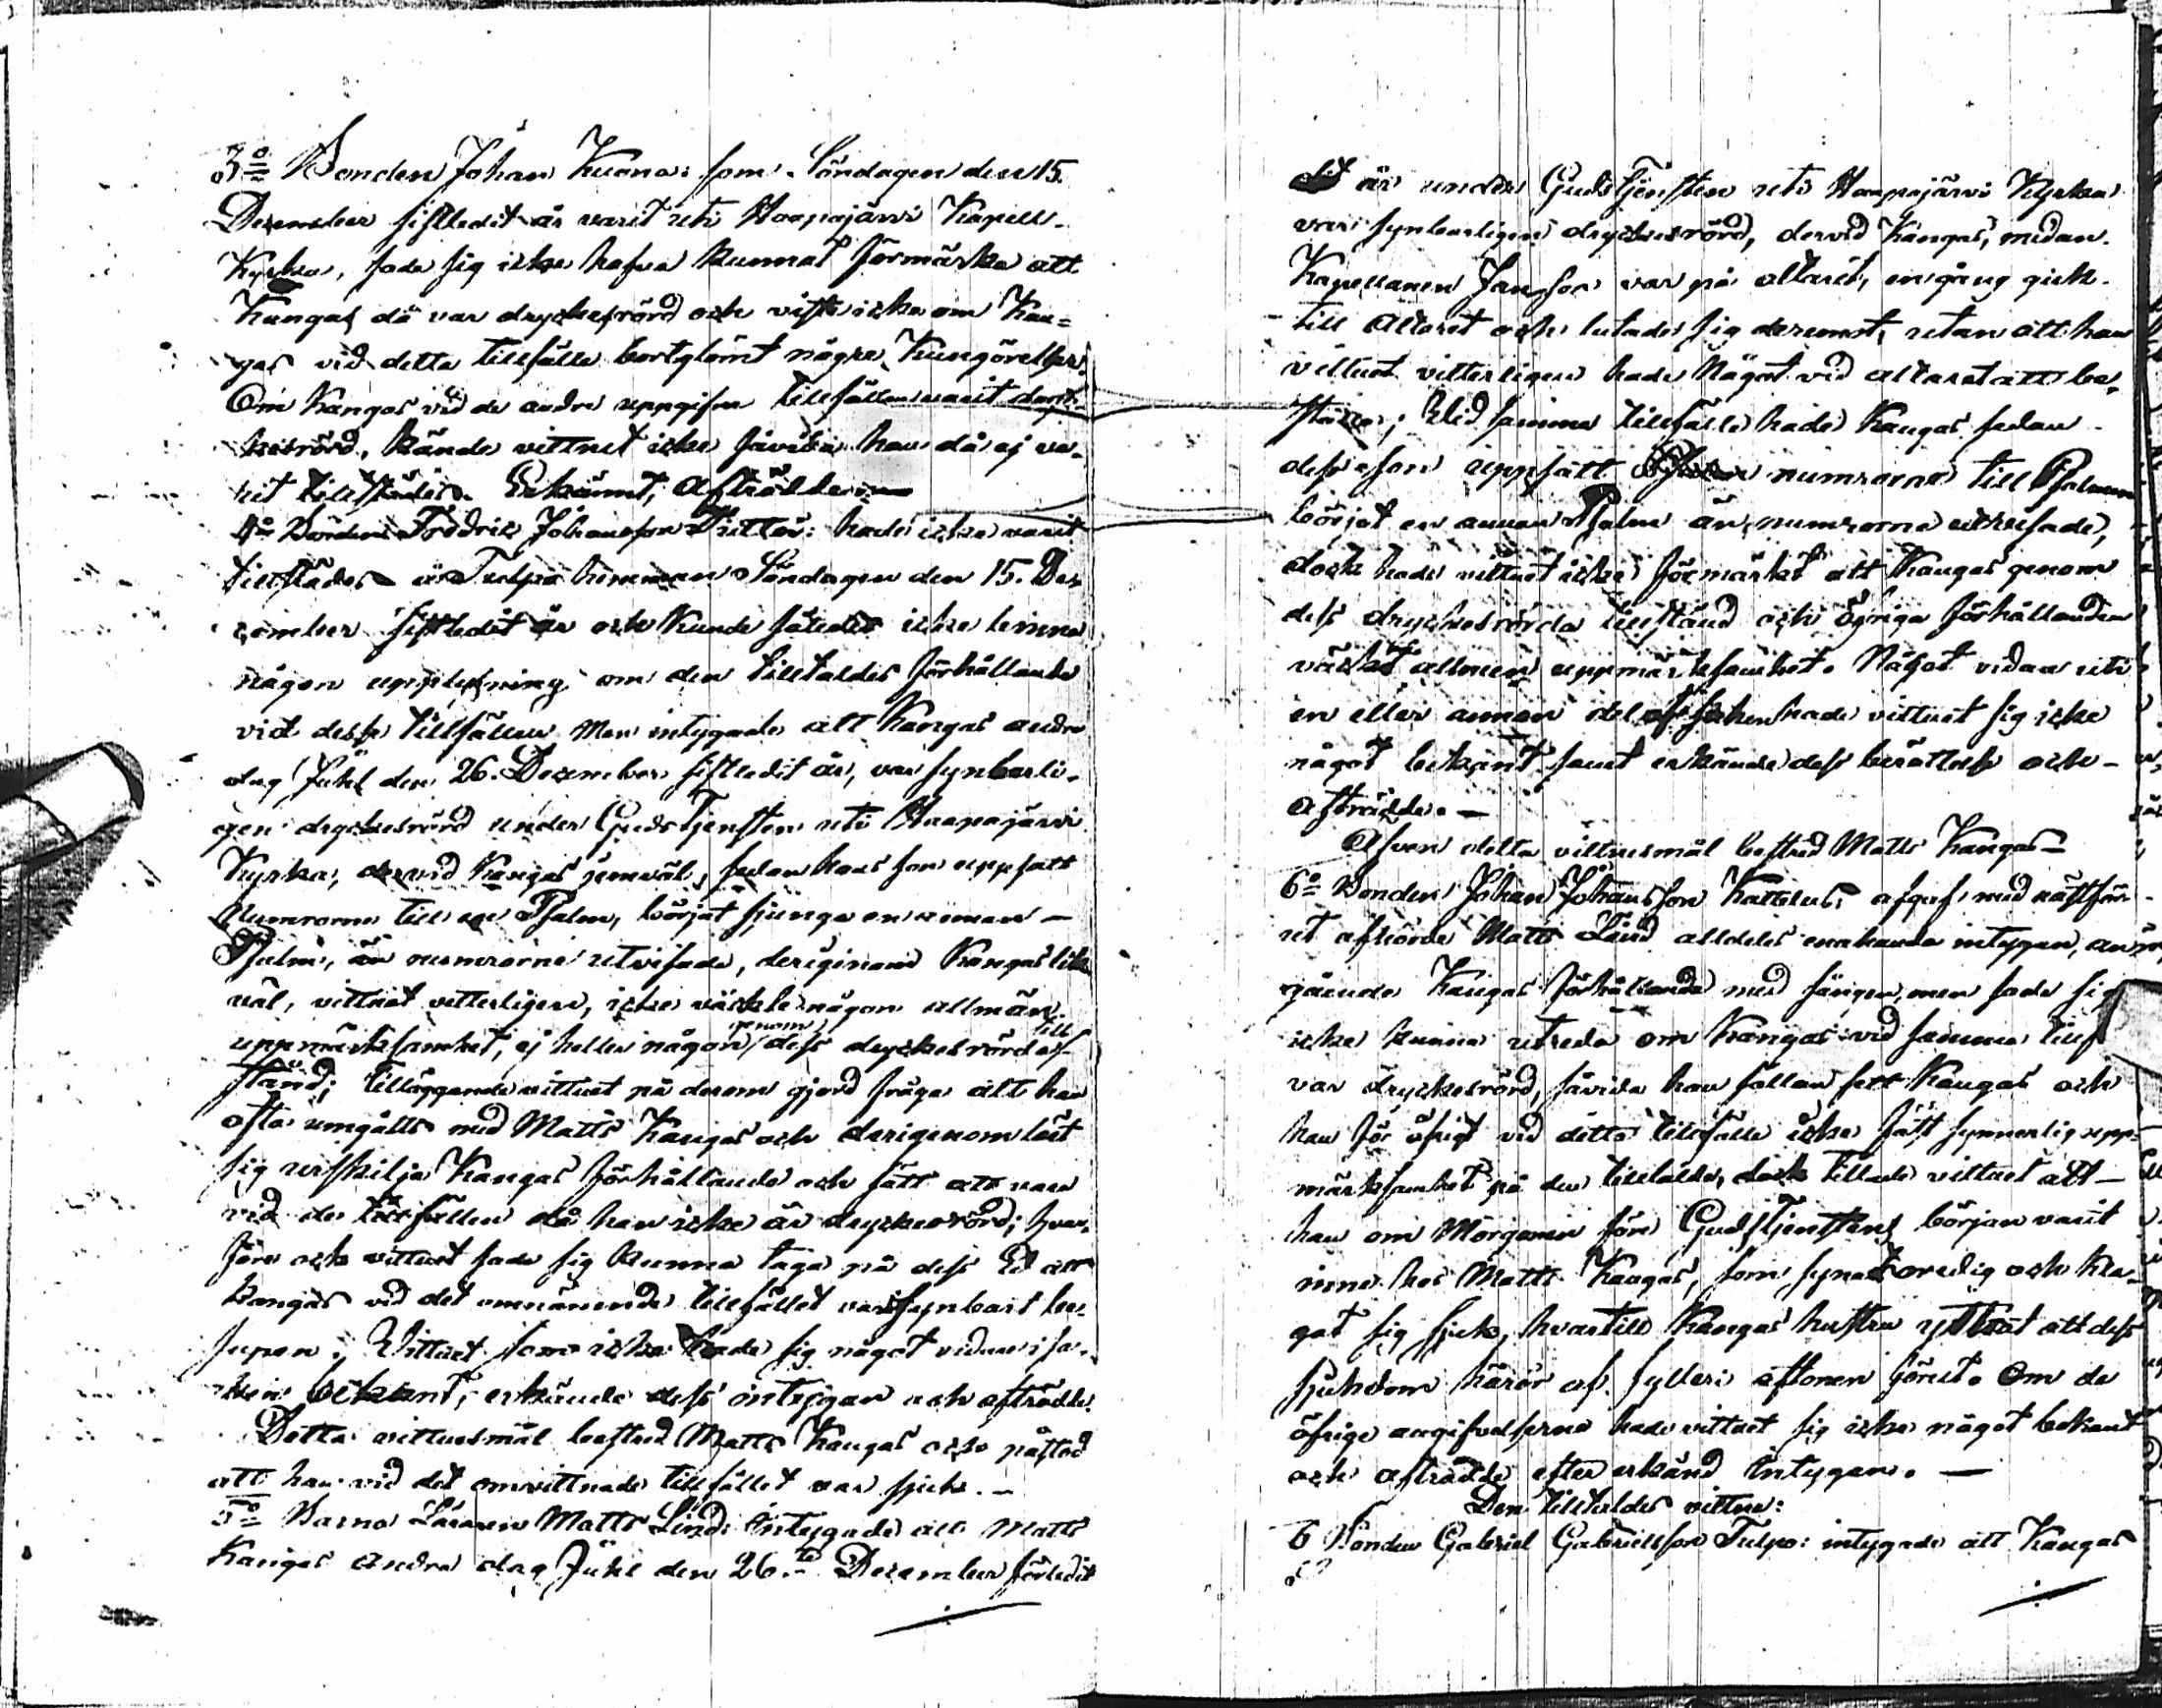 3o Bonden Johan Kuona: som Söndagen den 15.
December sistledit år varit uti Haapajärvi Kapell-
Kyrka, sade sig icke hafva kunnat förmärka att
Kangas då var dryckesrörd och visste icke om Kan-
gas vid detta tillfälle bortglömt några Kungörelser.
Om Kangas vid de andra uppgifna tillfällen varit dryc-
kesrörd, kände vittnet icke såvida han då ej va-
rit tillstädes. Erkännt, afträdde.
4o Bonden Fredric Johansson: hade icke varit
tillstädes å Tulpo hemman Söndagen den 15. De-
cember sistledit år och kunde således icke lemna
någon upplysning om den tilltaldes förhållande
vid desse tillfällen men intygade att Kangas andra
dag Juhl den 26. December sistledit år, var synbarli-
gen dryckesrörd under Gudstjensten uti Haapajärvi
Kyrka, dervid Kangas jemväl, sedan hans son uppsatt
Numrorne till en Psalm, börjat sjunga en annan
Psalm, än numrorne utvisade, derigenom Kangas lik-
väl, vittnet vetterligen, icke väckte någon allmän
uppmärksamhet, ej heller någon genom dess dryckesrörda till-
stånd; Tilläggande vittnet på derom gjord fråga att han
ofta umgåtts med Matts Kangas och derigenom lärt
sig urskilja Kangas förhållande och sätt att vara
vid de tillfällen då han icke är dryckesrörd; hvar-
före och vittnet sade sig kunna taga på dess Ed att
Kangas vid det omnämnde tillfället var synbart be-
supen; Vittnet som icke hade sig något vidare i sa-
ken bekant, erkände dess intygan och afträdde.
Detta vittnesmål bestred Matts Kangas och påstod
att han vid det omvittnade tillfället var sjuk.
5o Barna Läraren Matts Lind: intygade att Matts
Kangas andra dag Juhl den 26.te December förledit
år under Gudstjensten uti Haapajärvi Kyrka
var synbarligen dryckesrörd, dervid Kangas, medan
Kapellanen Jansson var på altaret, en gång gick
till Altaret och lutade sig deremot, utan att han
vittnet vitterligen hade något vid altaret att be-
ställa; Vid samma tillfälle hade Kangas sedan
dess son uppsatt numrorne till Psalmen
börjat en annan Psalm än numrorne utvisade,
dock hade vittnet icke förmärkt att Kangas genom
dess dryckesrörda tillstånd och öfriga förhållanden
väckt allmän uppmärksamhet. Något vidare uti
en eller annan del af saken hade vittnet sig icke
något bekant samt erkände dess berättelse och
afträdde.
Äfven detta vittnesmål bestred Matts Kangas
6o Bonden Johan Johansson Kattelus: afgaf med nästför-
ut afhörde Matts Lind alldeles enahanda intygan,
gående Kangas förhållande med sången, men sade sig
icke kunna utreda om Kangas vid samma
var dryckesrörd, såvida han sällan sett Kangas och
han för öfrigt vid detta tillfälle icke fäst synnerlig upp-
märksamhet på den tilltalde, dock tillade vittnet att
han om Morgonen före Gudstjenstens början varit
inne hos Matts Kangas, som synats oredig och kla-
gat sig sjuk, hvartill Kangas hustru yttrat att dess
sjukdom härör af fylleri aftonen förut. Om de
öfrige angifvelserne hade vittnet sig icke något bekant
och afträdde efter erkänd intygan.
Den tilltaldes vittne:
6 Bonden Gabriel Gabrielsson Tulpo: intygade att Kangas